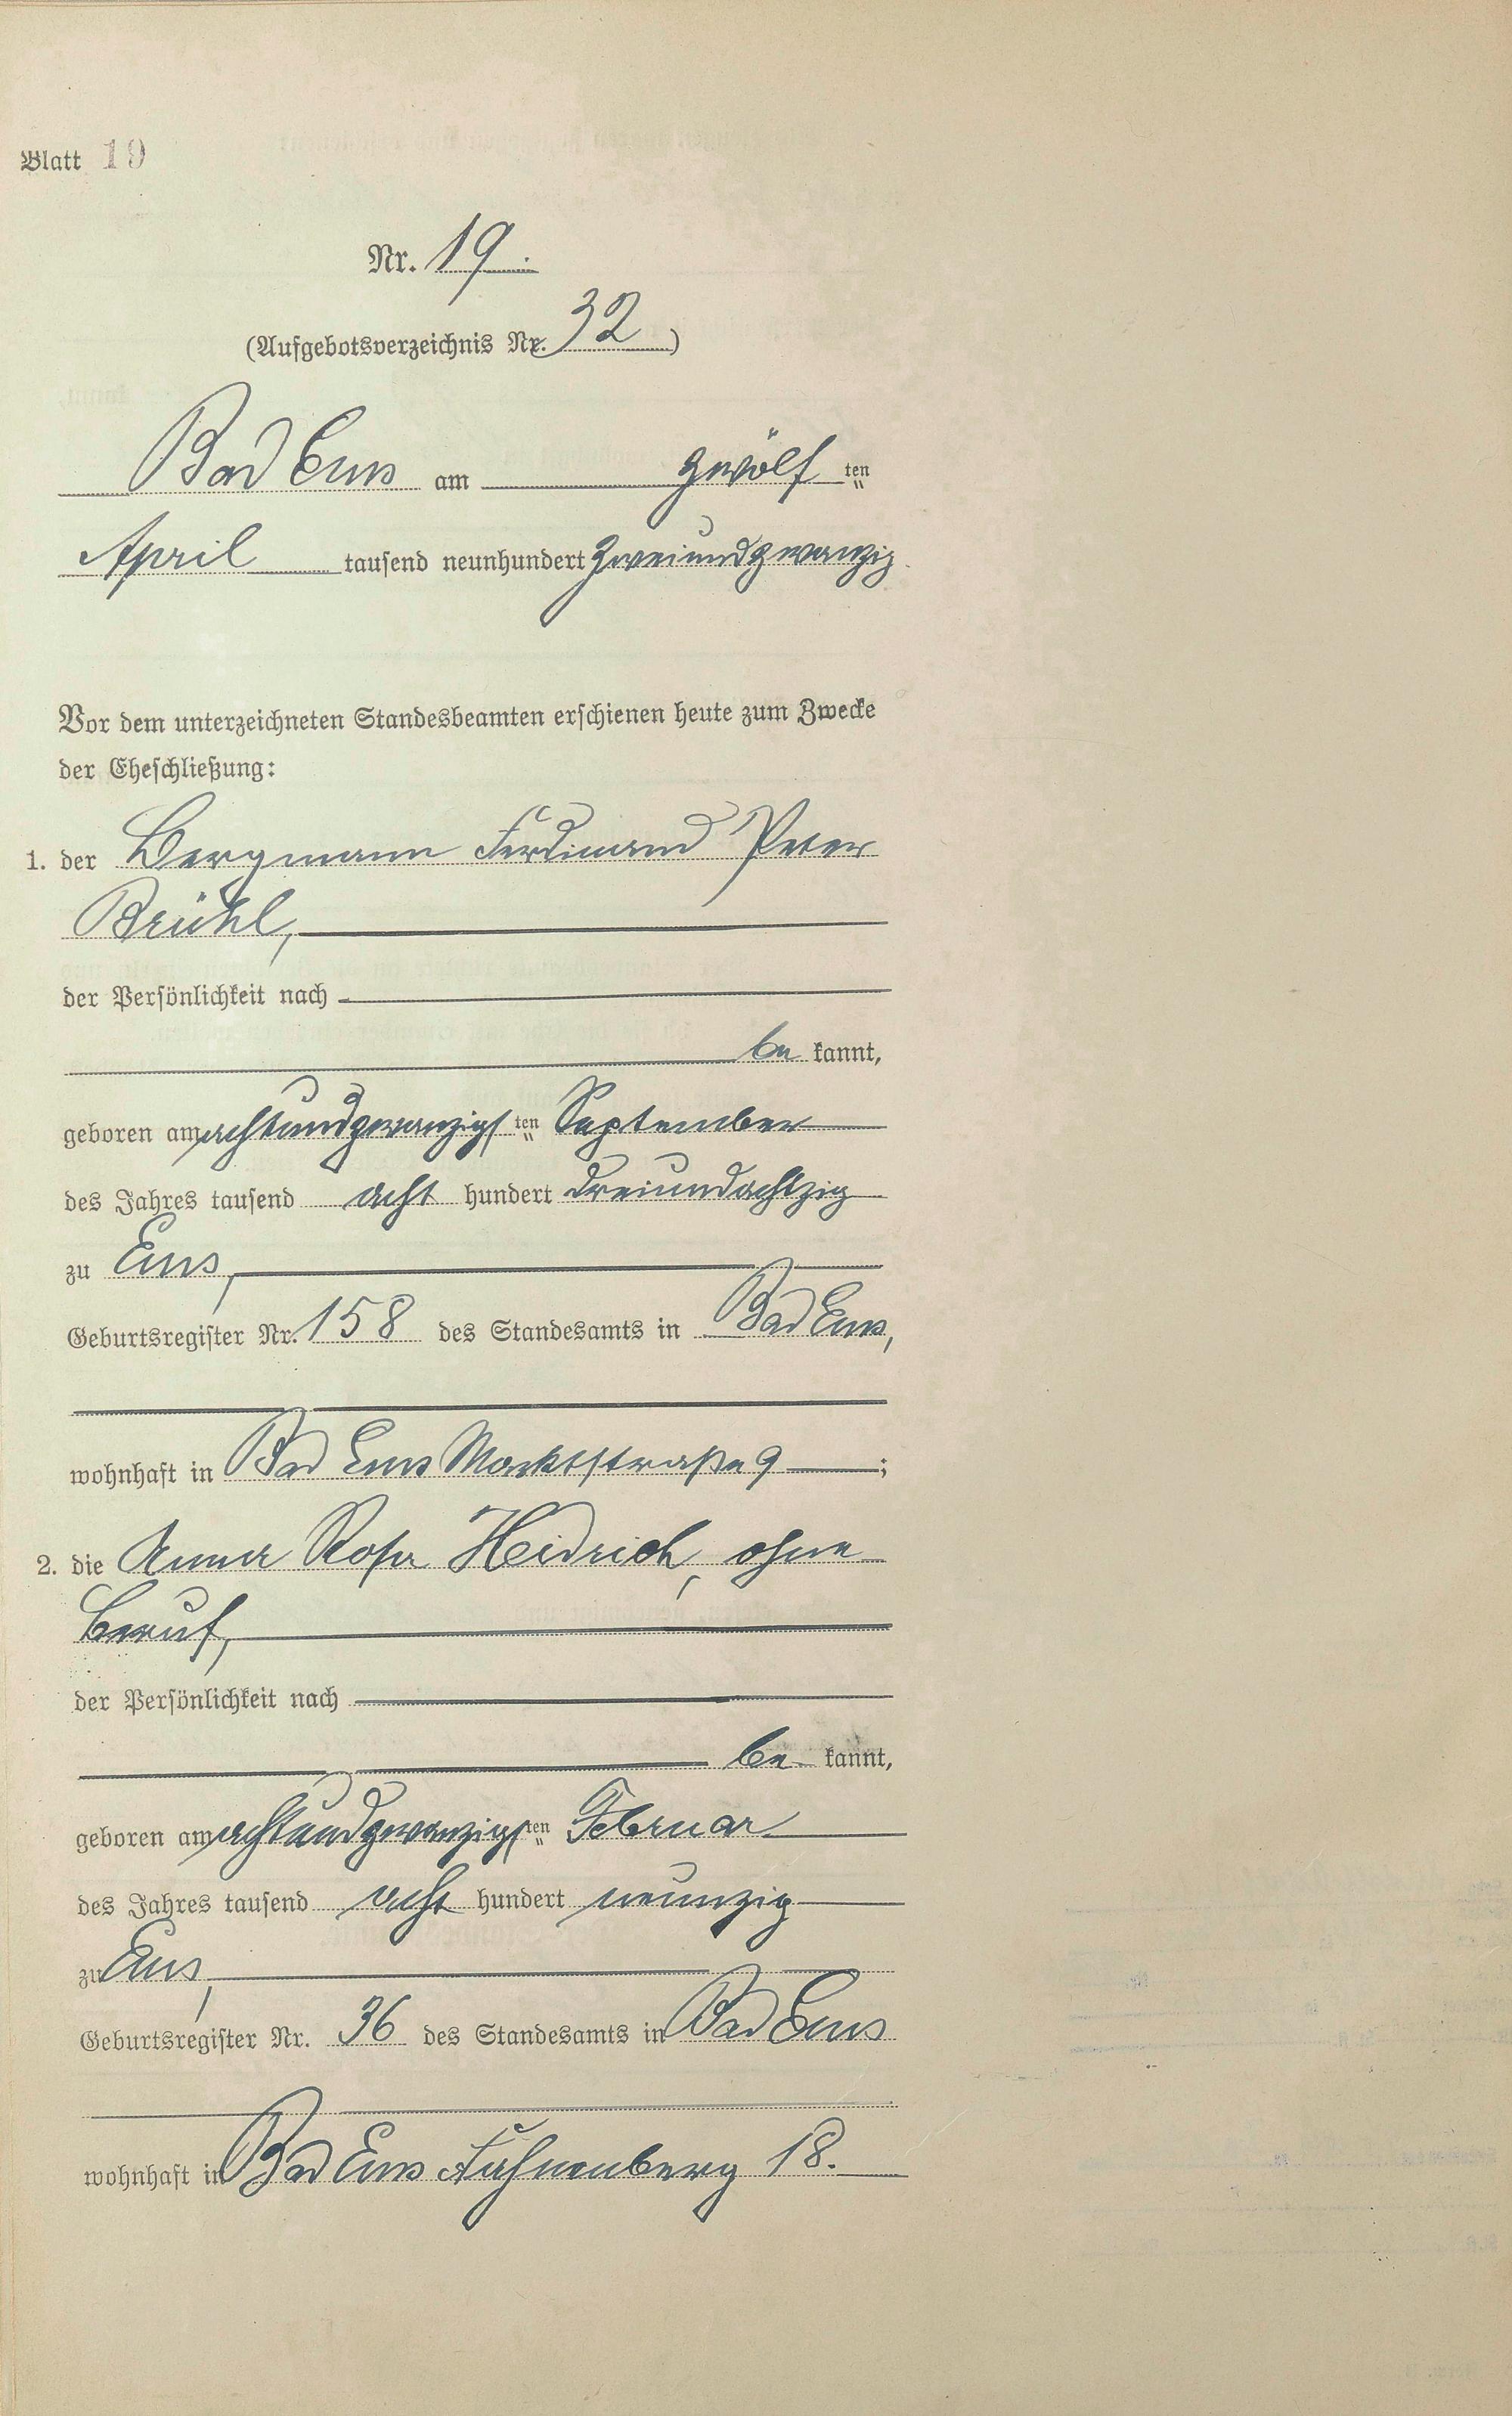 Blatt 19
Nr. 19.
(Aufgebotsverzeichnis Nr. 32)
Bad Ems am zwölf ten
April tausend neunhundert zweiundzwanzig
Vor dem unterzeichneten Standesbeamten erschienen heute zum Zwecke
der Eheschließung:
1. der Bergmann Ferdinand Peter
Brühl,
der Persönlichkeit nach
be kannt,
geboren am achtundzwanzigs ten September
des Jahres tausend acht hundert dreiundachtzig
zu Ems,
Geburtsregister Nr. 158 des Standesamts in Bad Ems,
wohnhaft in Bad Ems Marktstraße 9 ;
2. die Anna Rosa Heidrich, ohne
Beruf,
der Persönlichkeit nach
be kannt,
geboren am achtundzwanzigs ten Februar
des Jahres tausend acht hundert neunzig
zu Ems,
Geburtsregister Nr. 36 des Standesamts in Bad Ems
wohnhaft in Bad Ems 18.